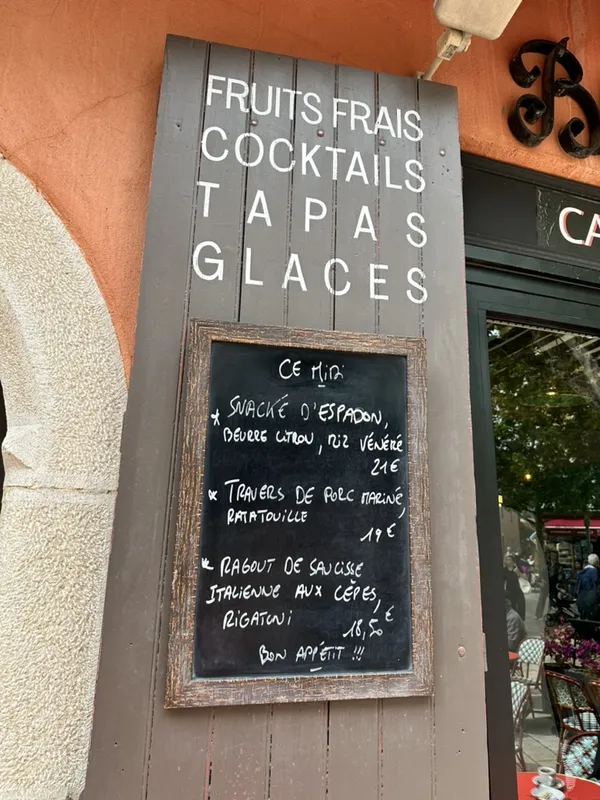 FRUITS FRAIS
COCKTAILS
TAPAS
GLACES
CA
CE MiDi
* SNACKÉ D'ESPADON,
BEURRE CITRON, RIZ VÉNÉRÉ
21€
* TRAVERS DE PORC MARINÉ,
RATATOUILLE
19€
* RAGOUT DE SAUCISSE
ITALIENNE AUX CÈPES,
RIGATONI
18,50€
BON APPÉTIT !!!